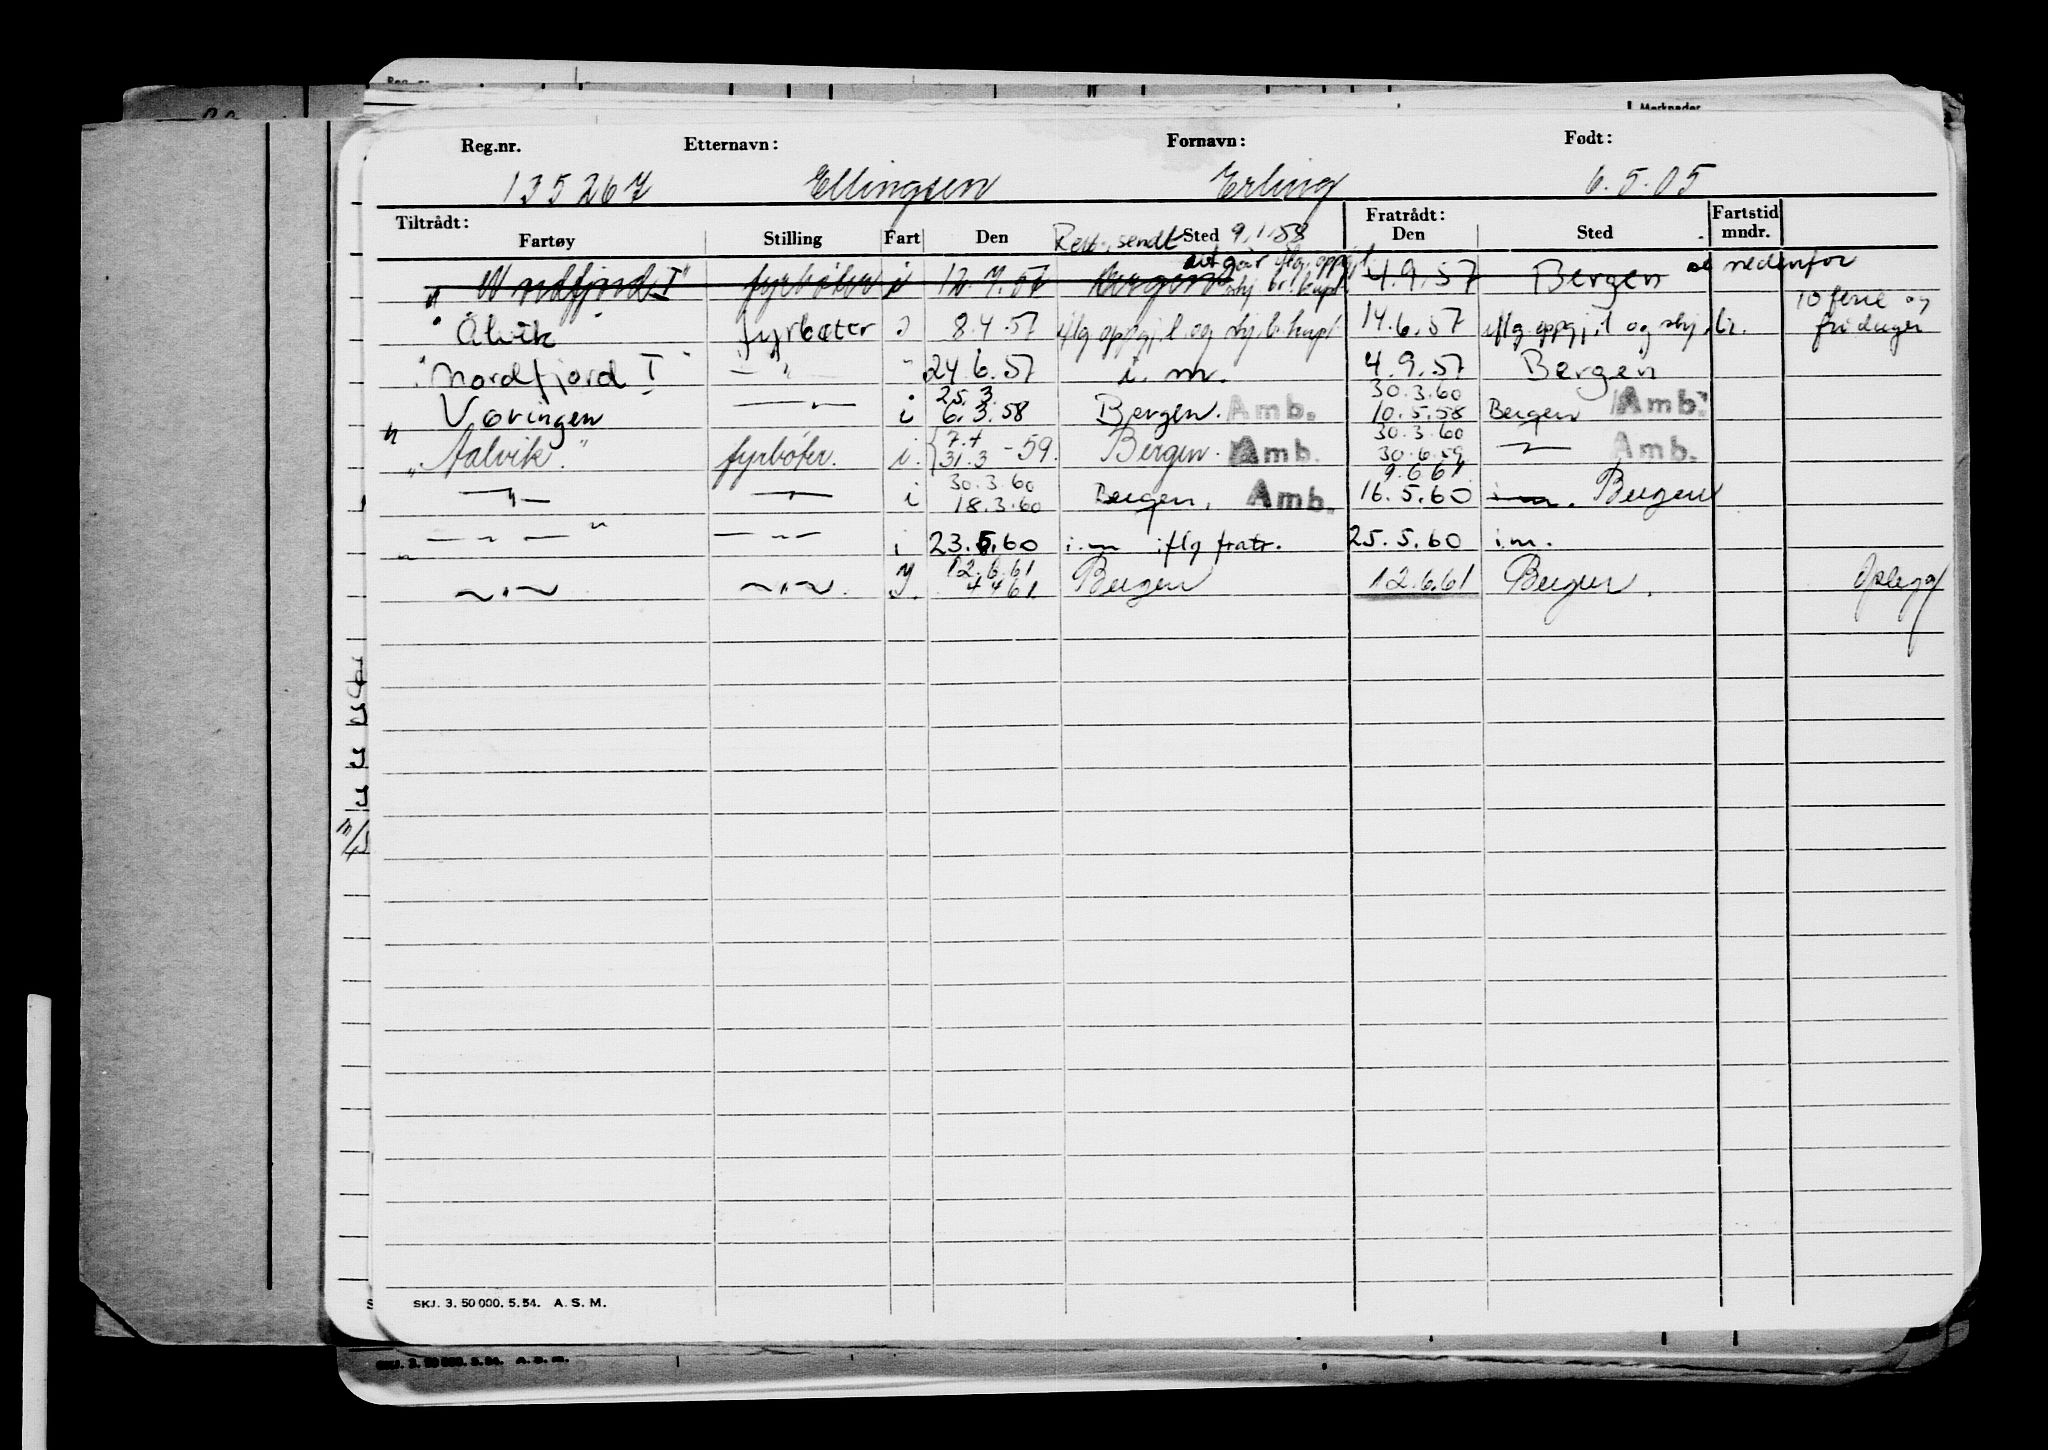 Reg.nr. Etternavn: Fornavn: Født:
135267 Ellingsen Erling 6.5.05
Tiltrådt: Fratrådt: Fartstid
Fartøy Stilling Fart Den Sted Den Sted mndr.
sendt 9.1.58
"Nordfjord I" fyrbøter i 12.7.57 Bergen 4.9.57 Bergen se nedenfor
utgår iflg. oppgj.
"Ålvik" fyrbøter i 8.4.57 iflg oppgj. l og skj. b. kupl 14.6.57 iflg. oppgj. l og skj. br. 10 ferie og fridager
"Nordfjord I" — " — " 24.6.57 i. m. 4.9.57 Bergen
25.3. 30.3.60
Vøringen — " — i 6.3.58 Bergen. Amb. 10.5.58 Bergen Amb.
7.4 30.3.60
"Aalvik." fyrbøter. i. 31.3 -59. Bergen. Amb. 30.6.59 — " — Amb.
30.3.60 9.6.61
— " — — " — i 18.3.60 Bergen. Amb. 16.5.60 i.m. Bergen
" — " — " — " — i 23.5.60 i.m iflg fratr. 25.5.60 i.m.
12.6.61
— " — — " — . 4.4.61 Bergen 12.6.61 Bergen. Oplegg
SKJ. 3. 50 000. 5. 54. A. S. M.